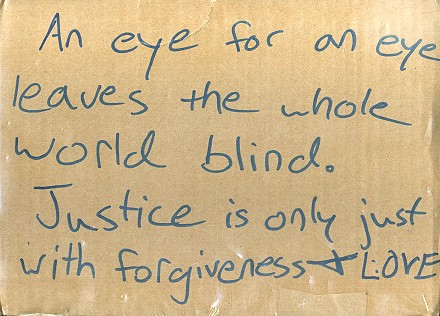 An eye for an eye
leaves the whole
world blind.
Justice is only just
with forgiveness + LOVE